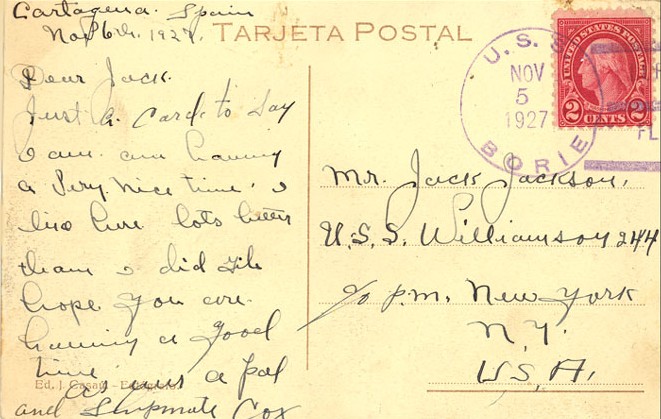 Cartagena. Spain
Nov 6th. 1927.
TARJETA POSTAL
Dear Jack.
Just a card to say
I am and having
a very nice time. I
like here lots better
than I did
hope you are
having a good
time.
as ever a pal
and Shipmate Cox
Ed. J. Casaú -
U. S. S.
NOV
5
1927
BORIE
UNITED STATES POSTAGE
2 CENTS 2
Mr. Jack Jackson,
U.S.S. Williamson 244
c/o P.M. New York
N.Y.
U.S.A.